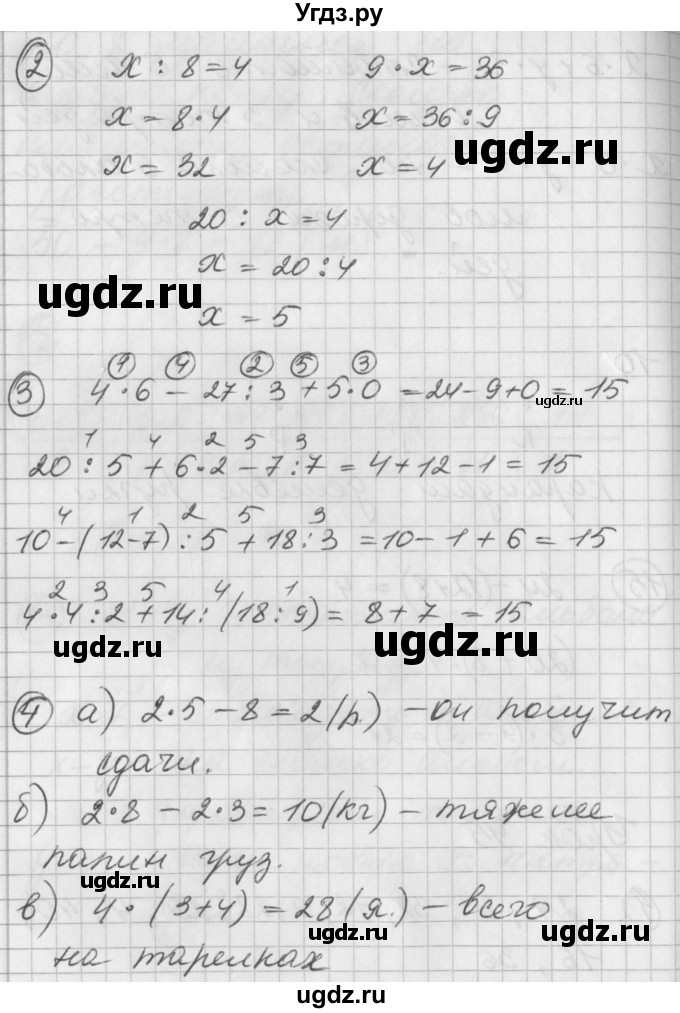 Угдз.ру
② x : 8 = 4 9 · x = 36
x = 8 · 4 x = 36 : 9
x = 32 x = 4
ugdz.ru
20 : x = 4
x = 20 : 4
ugdz.ru
x = 5
① ④ ② ⑤ ③
③ 4 · 6 − 27 : 3 + 5 · 0 = 24 − 9 + 0 = 15
ugdz.ru
1 4 2 5 3
20 : 5 + 6 · 2 − 7 : 7 = 4 + 12 − 1 = 15
4 1 2 5 3
10 − (12 − 7) : 5 + 18 : 3 = 10 − 1 + 6 = 15
2 3 5 4 1
4 · 4 : 2 + 14 : (18 : 9) = 8 + 7 = 15
ugdz.ru ugdz.ru
④ а) 2 · 5 − 8 = 2 (р.) – он получит
сдачи.
ugdz.ru
б) 2 · 8 − 2 · 3 = 10 (кг) – тяжелее
папин груз.
ugdz.ru
в) 4 · (3 + 4) = 28 (я.) – всего
ugdz.ru
на тарелках
ugdz.ru
ugdz.ru